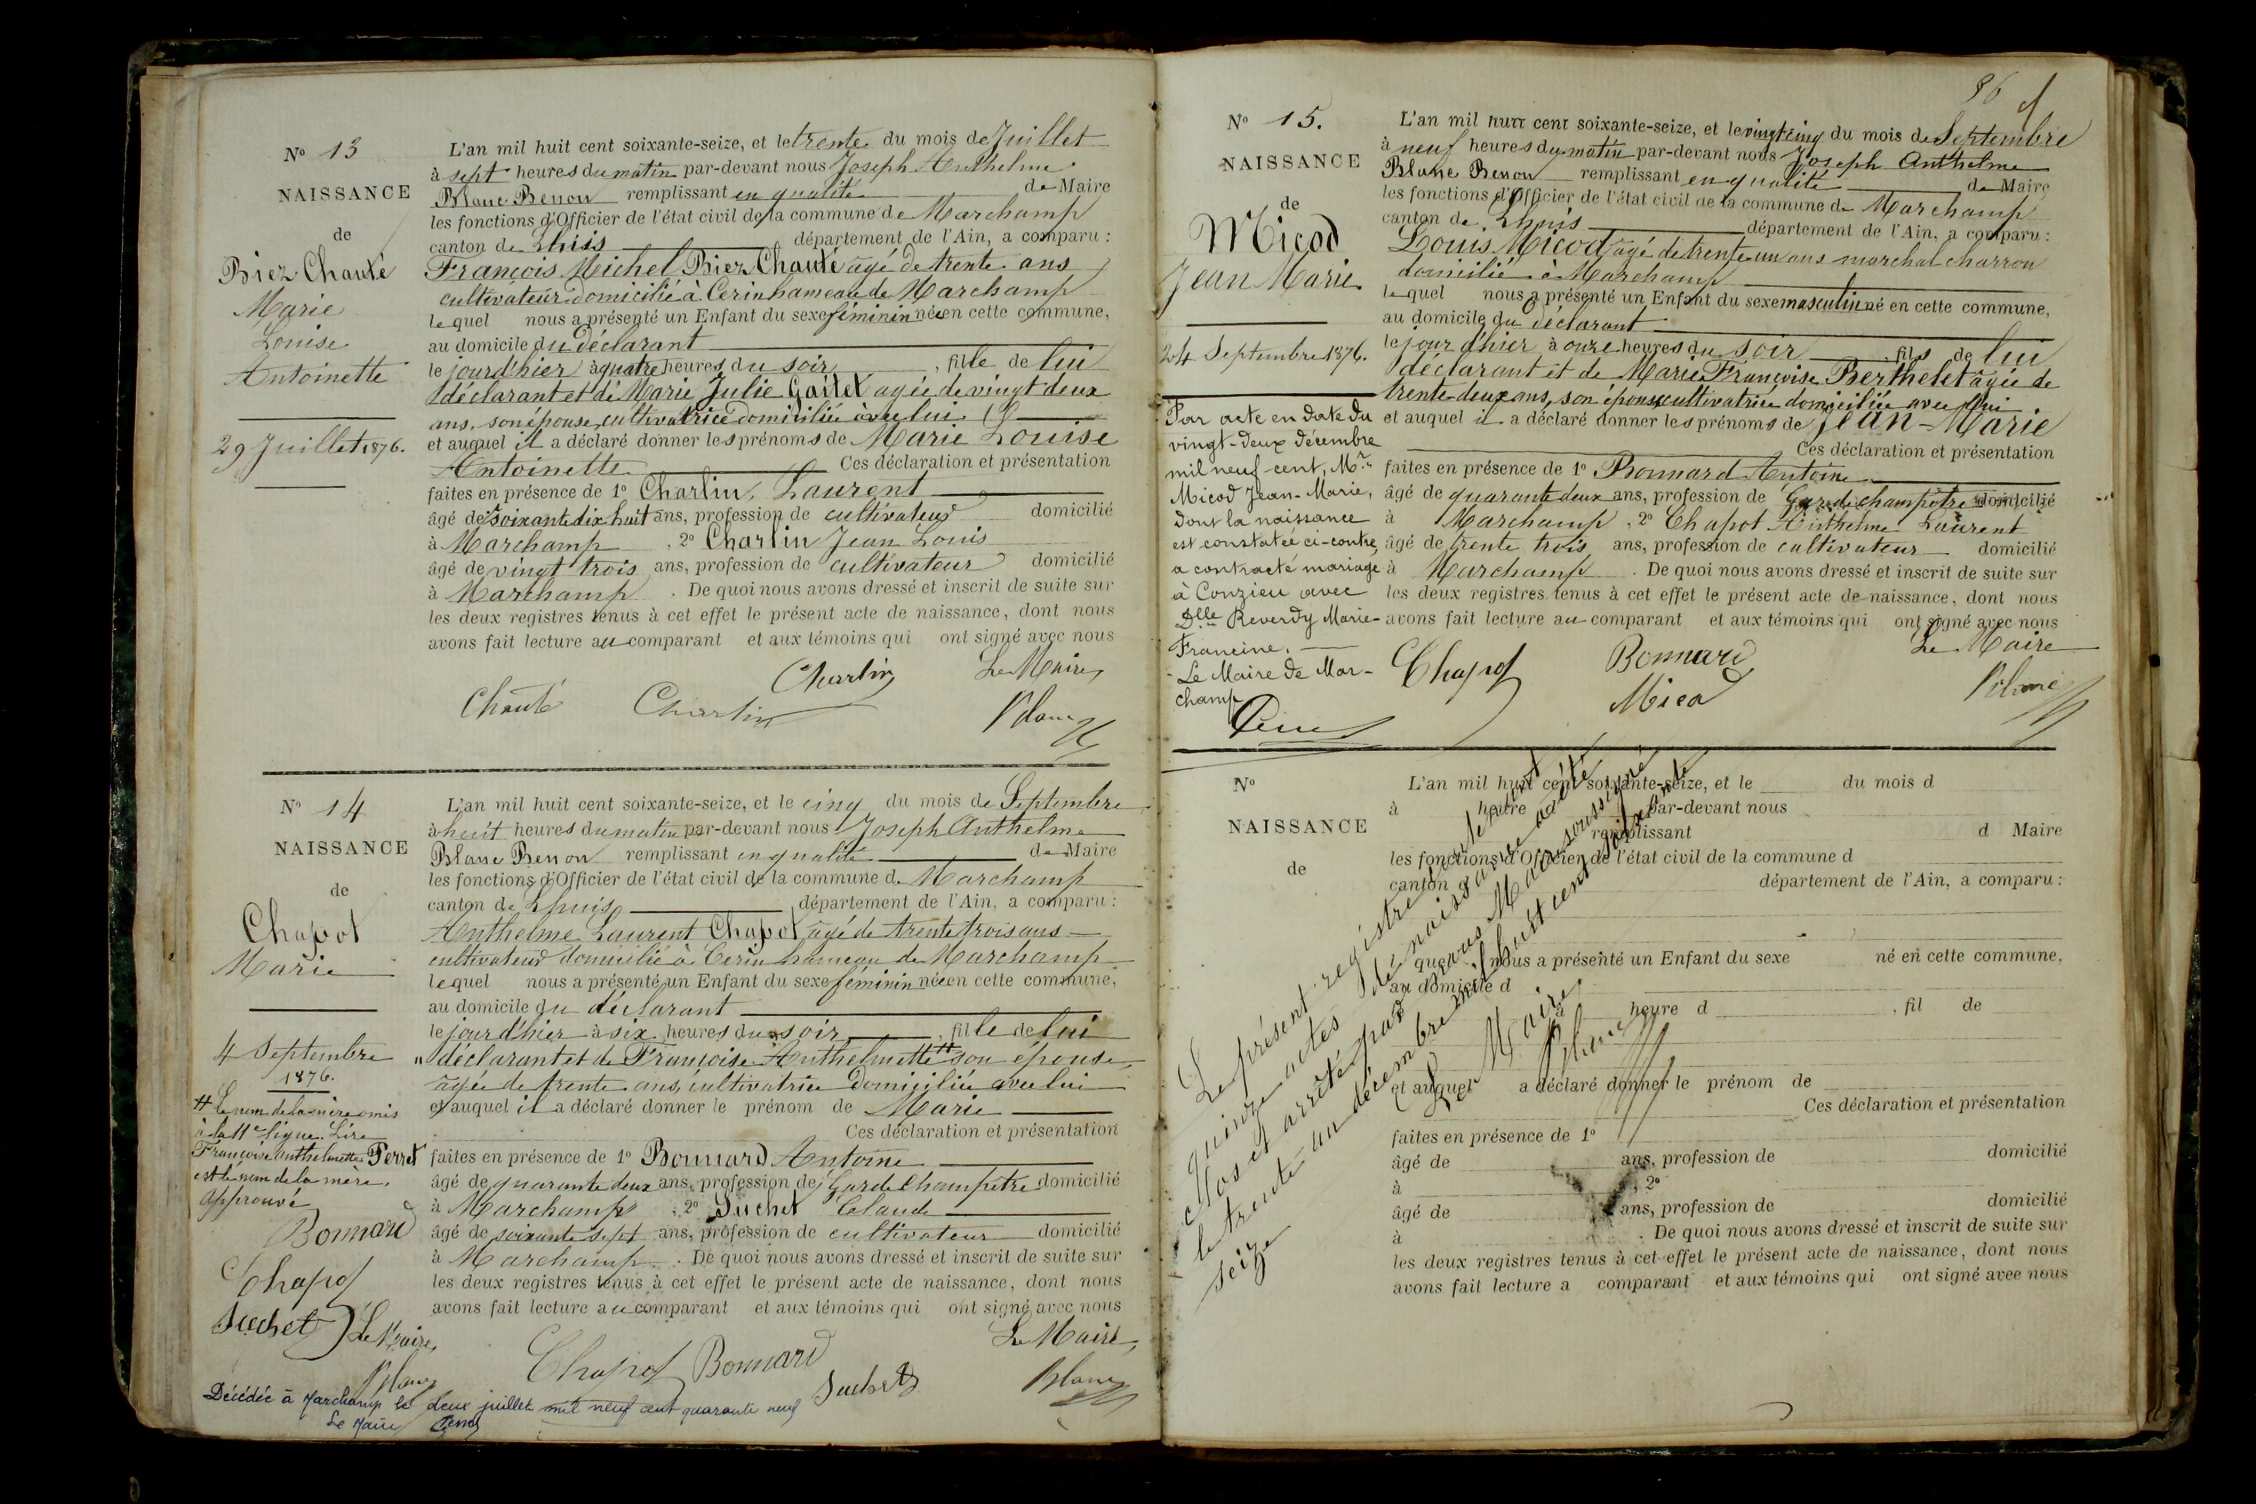 N° 13
NAISSANCE
de
Biez Chauté
Marie
Louise
Antoinette
29 Juillet 1876.
L'an mil huit cent soixante-seize, et le trente du mois de Juillet
à sept heures du matin par-devant nous Joseph Anthelme
Blanc Benon remplissant en qualité de Maire
les fonctions d'Officier de l'état civil de la commune de Marchamp
canton de Lhuis département de l'Ain, a comparu :
François Michel Biez Chauté âgé de trente ans
cultivateur domicilié à Cerin hameau de Marchamp
lequel nous a présenté un Enfant du sexe féminin née en cette commune,
au domicile du déclarant
le jour d'hier à quatre heures du soir, fille de lui
déclarant et de Marie Julie Gaillet agée de vingt deux
ans, son épouse, cultivatrice domiciliée avec lui
et auquel il a déclaré donner les prénoms de Marie Louise
Antoinette Ces déclaration et présentation
faites en présence de 1° Charlin, Laurent
âgé de soixante dix huit ans, profession de cultivateur domicilié
à Marchamp, 2° Charlin Jean Louis
âgé de vingt trois ans, profession de cultivateur domicilié
à Marchamp. De quoi nous avons dressé et inscrit de suite sur
les deux registres tenus à cet effet le présent acte de naissance, dont nous
avons fait lecture au comparant et aux témoins qui ont signé avec nous
Charlin Le Maire
Chauté Charlin Blanc
N° 14
NAISSANCE
de
Chapot
Marie
4 Septembre
1876.
# Le nom de la mère omis
à la 11e ligne. Lire
Françoise Anthelmette Perret
est le nom de la mère.
Approuvé
Bonnard
Chapot
Suchet Le Maire,
Blanc
L'an mil huit cent soixante-seize, et le cinq du mois de Septembre
à huit heures du matin par-devant nous Joseph Anthelme
Blanc Benon remplissant en qualité de Maire
les fonctions d'Officier de l'état civil de la commune de Marchamp
canton de Lhuis département de l'Ain, a comparu :
Anthelme Laurent Chapot âgé de trente trois ans
cultivateur domicilié à Cerin hameau de Marchamp
lequel nous a présenté un Enfant du sexe féminin née en cette commune,
au domicile du déclarant
le jour d'hier à six heures du soir, fille de lui
déclarant et de Françoise Anthelmette # son épouse,
âgée de trente ans, cultivatrice domiciliée avec lui
et auquel il a déclaré donner le prénom de Marie
Ces déclaration et présentation
faites en présence de 1° Bonnard Antoine
âgé de quarante deux ans, profession de Garde Champêtre domicilié
à Marchamp, 2° Suchet Claude
âgé de soixante sept ans, profession de cultivateur domicilié
à Marchamp. De quoi nous avons dressé et inscrit de suite sur
les deux registres tenus à cet effet le présent acte de naissance, dont nous
avons fait lecture au comparant et aux témoins qui ont signé avec nous
Le Maire,
Chapot Bonnard
Suchet Blanc
Décédée à Marchamp le deux juillet mil neuf cent quarante neuf
Le Maire
N° 15.
NAISSANCE
de
Micod
Jean Marie
24 Septembre 1876.
Par acte en date du
vingt-deux décembre
mil neuf cent, Mr.
Micod Jean-Marie,
dont la naissance
est constatée ci-contre,
a contracté mariage
à Conzieu avec
Dlle Reverdy Marie-
Francine.
Le Maire de Mar-
champ
86
L'an mil huit cent soixante-seize, et le vingt cinq du mois de Septembre
à neuf heures du matin par-devant nous Joseph Anthelme
Blanc Benon remplissant en qualité de Maire
les fonctions d'Officier de l'état civil de la commune de Marchamp
canton de Lhuis département de l'Ain, a comparu :
Louis Micod âgé de trente un ans marchal charron
domicilié à Marchamp
lequel nous a présenté un Enfant du sexe masculin né en cette commune,
au domicile du déclarant
le jour d'hier à onze heures du soir, fils de lui
déclarant et de Marie Françoise Berthelet âgée de
trente-deux ans, son épouse cultivatrice domiciliée avec lui
et auquel il a déclaré donner les prénoms de Jean-Marie
Ces déclaration et présentation
faites en présence de 1° Bonnard Antoine
âgé de quarante deux ans, profession de Garde champêtre domicilié
à Marchamp, 2° Chapot Anthelme Laurent
âgé de trente trois ans, profession de cultivateur domicilié
à Marchamp. De quoi nous avons dressé et inscrit de suite sur
les deux registres tenus à cet effet le présent acte de naissance, dont nous
avons fait lecture au comparant et aux témoins qui ont signé avec nous
Le Maire
Chapot Bonnard
Micod Blanc
N°
NAISSANCE
de
L'an mil huit cent soixante-seize, et le du mois d
à heure par-devant nous
remplissant d Maire
les fonctions d'Officier de l'état civil de la commune d
canton d département de l'Ain, a comparu :
quel nous a présenté un Enfant du sexe né en cette commune,
au domicile d
à heure d, fil de
et auquel a déclaré donner le prénom de
Ces déclaration et présentation
faites en présence de 1°
âgé de ans, profession de domicilié
à, 2°
âgé de ans, profession de domicilié
à. De quoi nous avons dressé et inscrit de suite sur
les deux registres tenus à cet effet le présent acte de naissance, dont nous
avons fait lecture a comparant et aux témoins qui ont signé avec nous
Le présent registre contenant
quinze actes de naissance a été
clos et arrêté par nous Maire soussigné
le trente-un décembre mil huit cent soixante
seize
Le Maire
Blanc